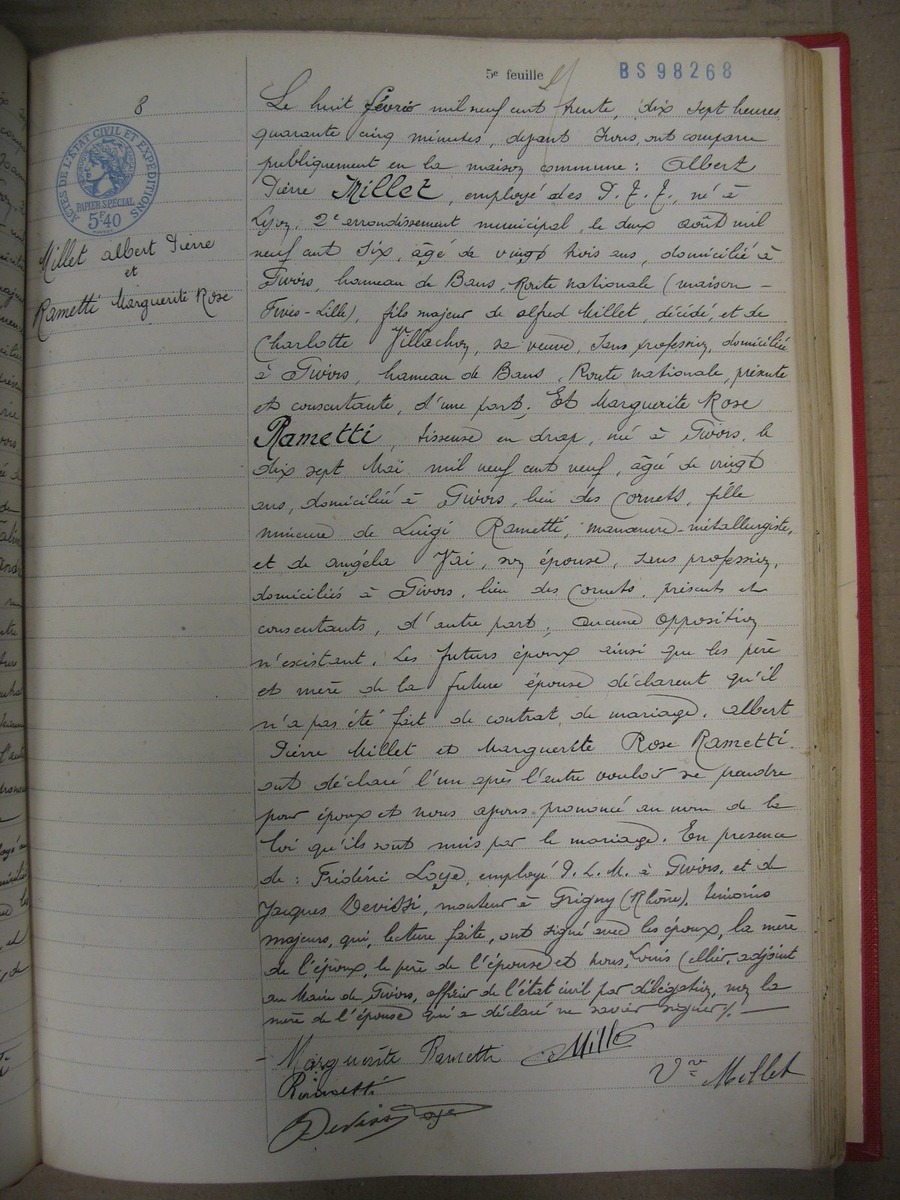 5e feuille
BS 98268
8
ACTES DE L'ETAT CIVIL ET EXPEDITIONS
PAPIER SPECIAL
5F40
Millet Albert Pierre
et
Rametti Marguerite Rose
Le huit février mil neuf cent trente, dix sept heures
quarante cinq minutes, devant Nous, ont comparu
publiquement en la maison commune : Albert
Pierre Millet, employé des P.T.T, né à
Lyon, 2e arrondissement municipal, le deux août mil
neuf cent six, âgé de vingt trois ans, domicilié à
Givors, hameau de Bans, Route nationale (maison
Fives-Lille), fils majeur de Alfred Millet, décédé, et de
Charlotte Villachon, sa veuve, sans profession, domiciliée
à Givors, hameau de Bans, Route nationale, présente
et consentante, d'une part; Et Marguerite Rose
Rametti, tisseuse en drap, née à Givors, le
dix sept Mai mil neuf cent neuf, âgée de vingt
ans, domiciliée à Givors, lieu des Cornets, fille
mineure de Luigi Rametti, manœuvre-métallurgiste,
et de Angéla Vai, son épouse, sans profession,
domiciliés à Givors, lieu des Cornets, présents et
consentants, d'autre part; aucune opposition
n'existant. Les futurs époux ainsi que les père
et mère de la future épouse déclarent qu'il
n'a pas été fait de contrat de mariage. Albert
Pierre Millet et Marguerite Rose Rametti
ont déclaré l'un après l'autre vouloir se prendre
pour époux et nous avons prononcé au nom de la
loi qu'ils sont unis par le mariage. En présence
de : Frédéric Loye, employé P.L.M. à Givors, et de
Jacques Devissi, mouleur à Grigny (Rhône), témoins
majeurs, qui, lecture faite, ont signé avec les époux, la mère
de l'époux, le père de l'épouse et nous, Louis Cellier, adjoint
au Maire de Givors, officier de l'état civil par délégation, non la
mère de l'épouse qui a déclaré ne savoir signer./.
Marguerite Rametti
Millet
Rametti
Vve Millet
Devissi
Loye